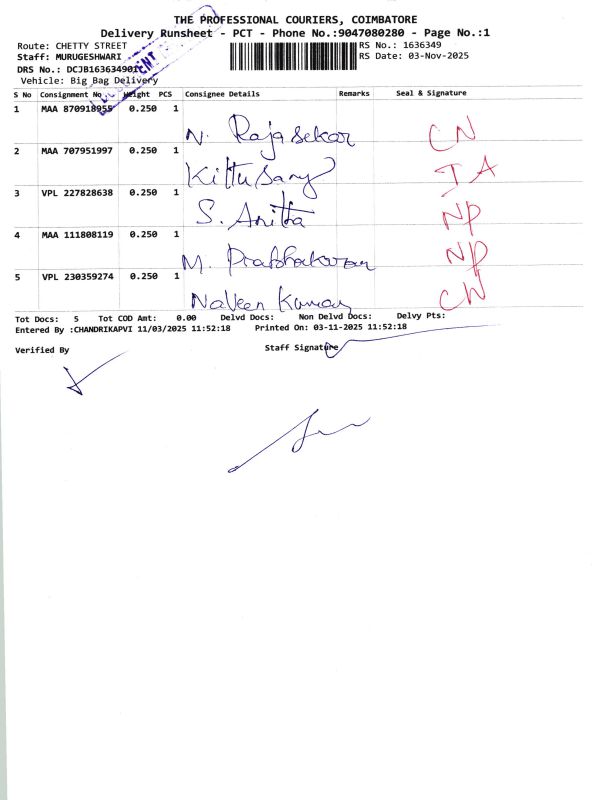 THE PROFESSIONAL COURIERS, COIMBATORE
Delivery Runsheet - PCT - Phone No.:9047080280 - Page No.:1
Route: CHETTY STREET RS No.: 1636349
Staff: MURUGESHWARI RS Date: 03-Nov-2025
DRS No.: DCJB163634901
Vehicle: Big Bag Delivery
S No Consignment No Weight PCS Consignee Details Remarks Seal & Signature
1 MAA 870918955 0.250 1
N. Rajasekar CN
2 MAA 707951997 0.250 1
Kittusamy IA
3 VPL 227828638 0.250 1
S. Anitha NP
4 MAA 111808119 0.250 1
M. Prabhakaran NP
5 VPL 230359274 0.250 1
Naveen Kumar CN
Tot Docs: 5 Tot COD Amt: 0.00 Delvd Docs: Non Delvd Docs: Delvy Pts:
Entered By :CHANDRIKAPVI 11/03/2025 11:52:18 Printed On: 03-11-2025 11:52:18
Verified By Staff Signature